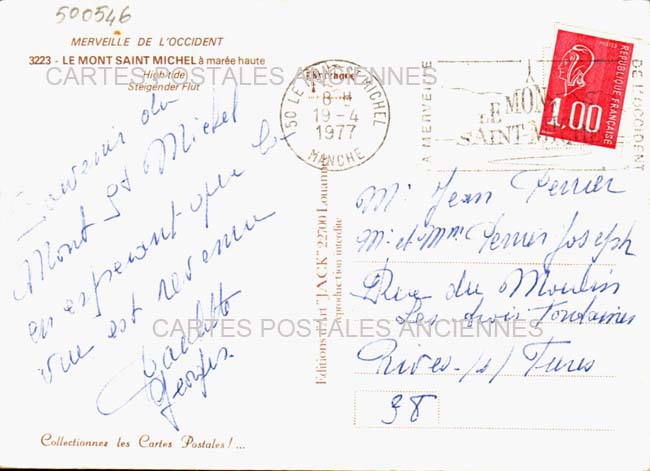 500546
MERVEILLE DE L'OCCIDENT
3223 - LE MONT SAINT MICHEL à marée haute
High tide
Steigender Flut
CARTES POSTALES ANCIENNES
Souvenir du
Mont St Michel
en esperant que la
vue est revenue
Georges.
Collectionnez les Cartes Postales ! ...
50 LE MONT ST MICHEL
8 H
19-4
1977
MANCHE
LA MERVEILLE
LE MONT
SAINT-MICHEL
DE L'OCCIDENT
POSTES
REPUBLIQUE FRANÇAISE
1,00
Editions d'Art "JACK" 22700 Louannec
Reproduction interdite
Mr Jean Perrier
Mr et Mme Perrier Joseph
Rue du Moulin
Les trois Fontaines
CARTES POSTALES ANCIENNES
Rives /s/ Fures
38